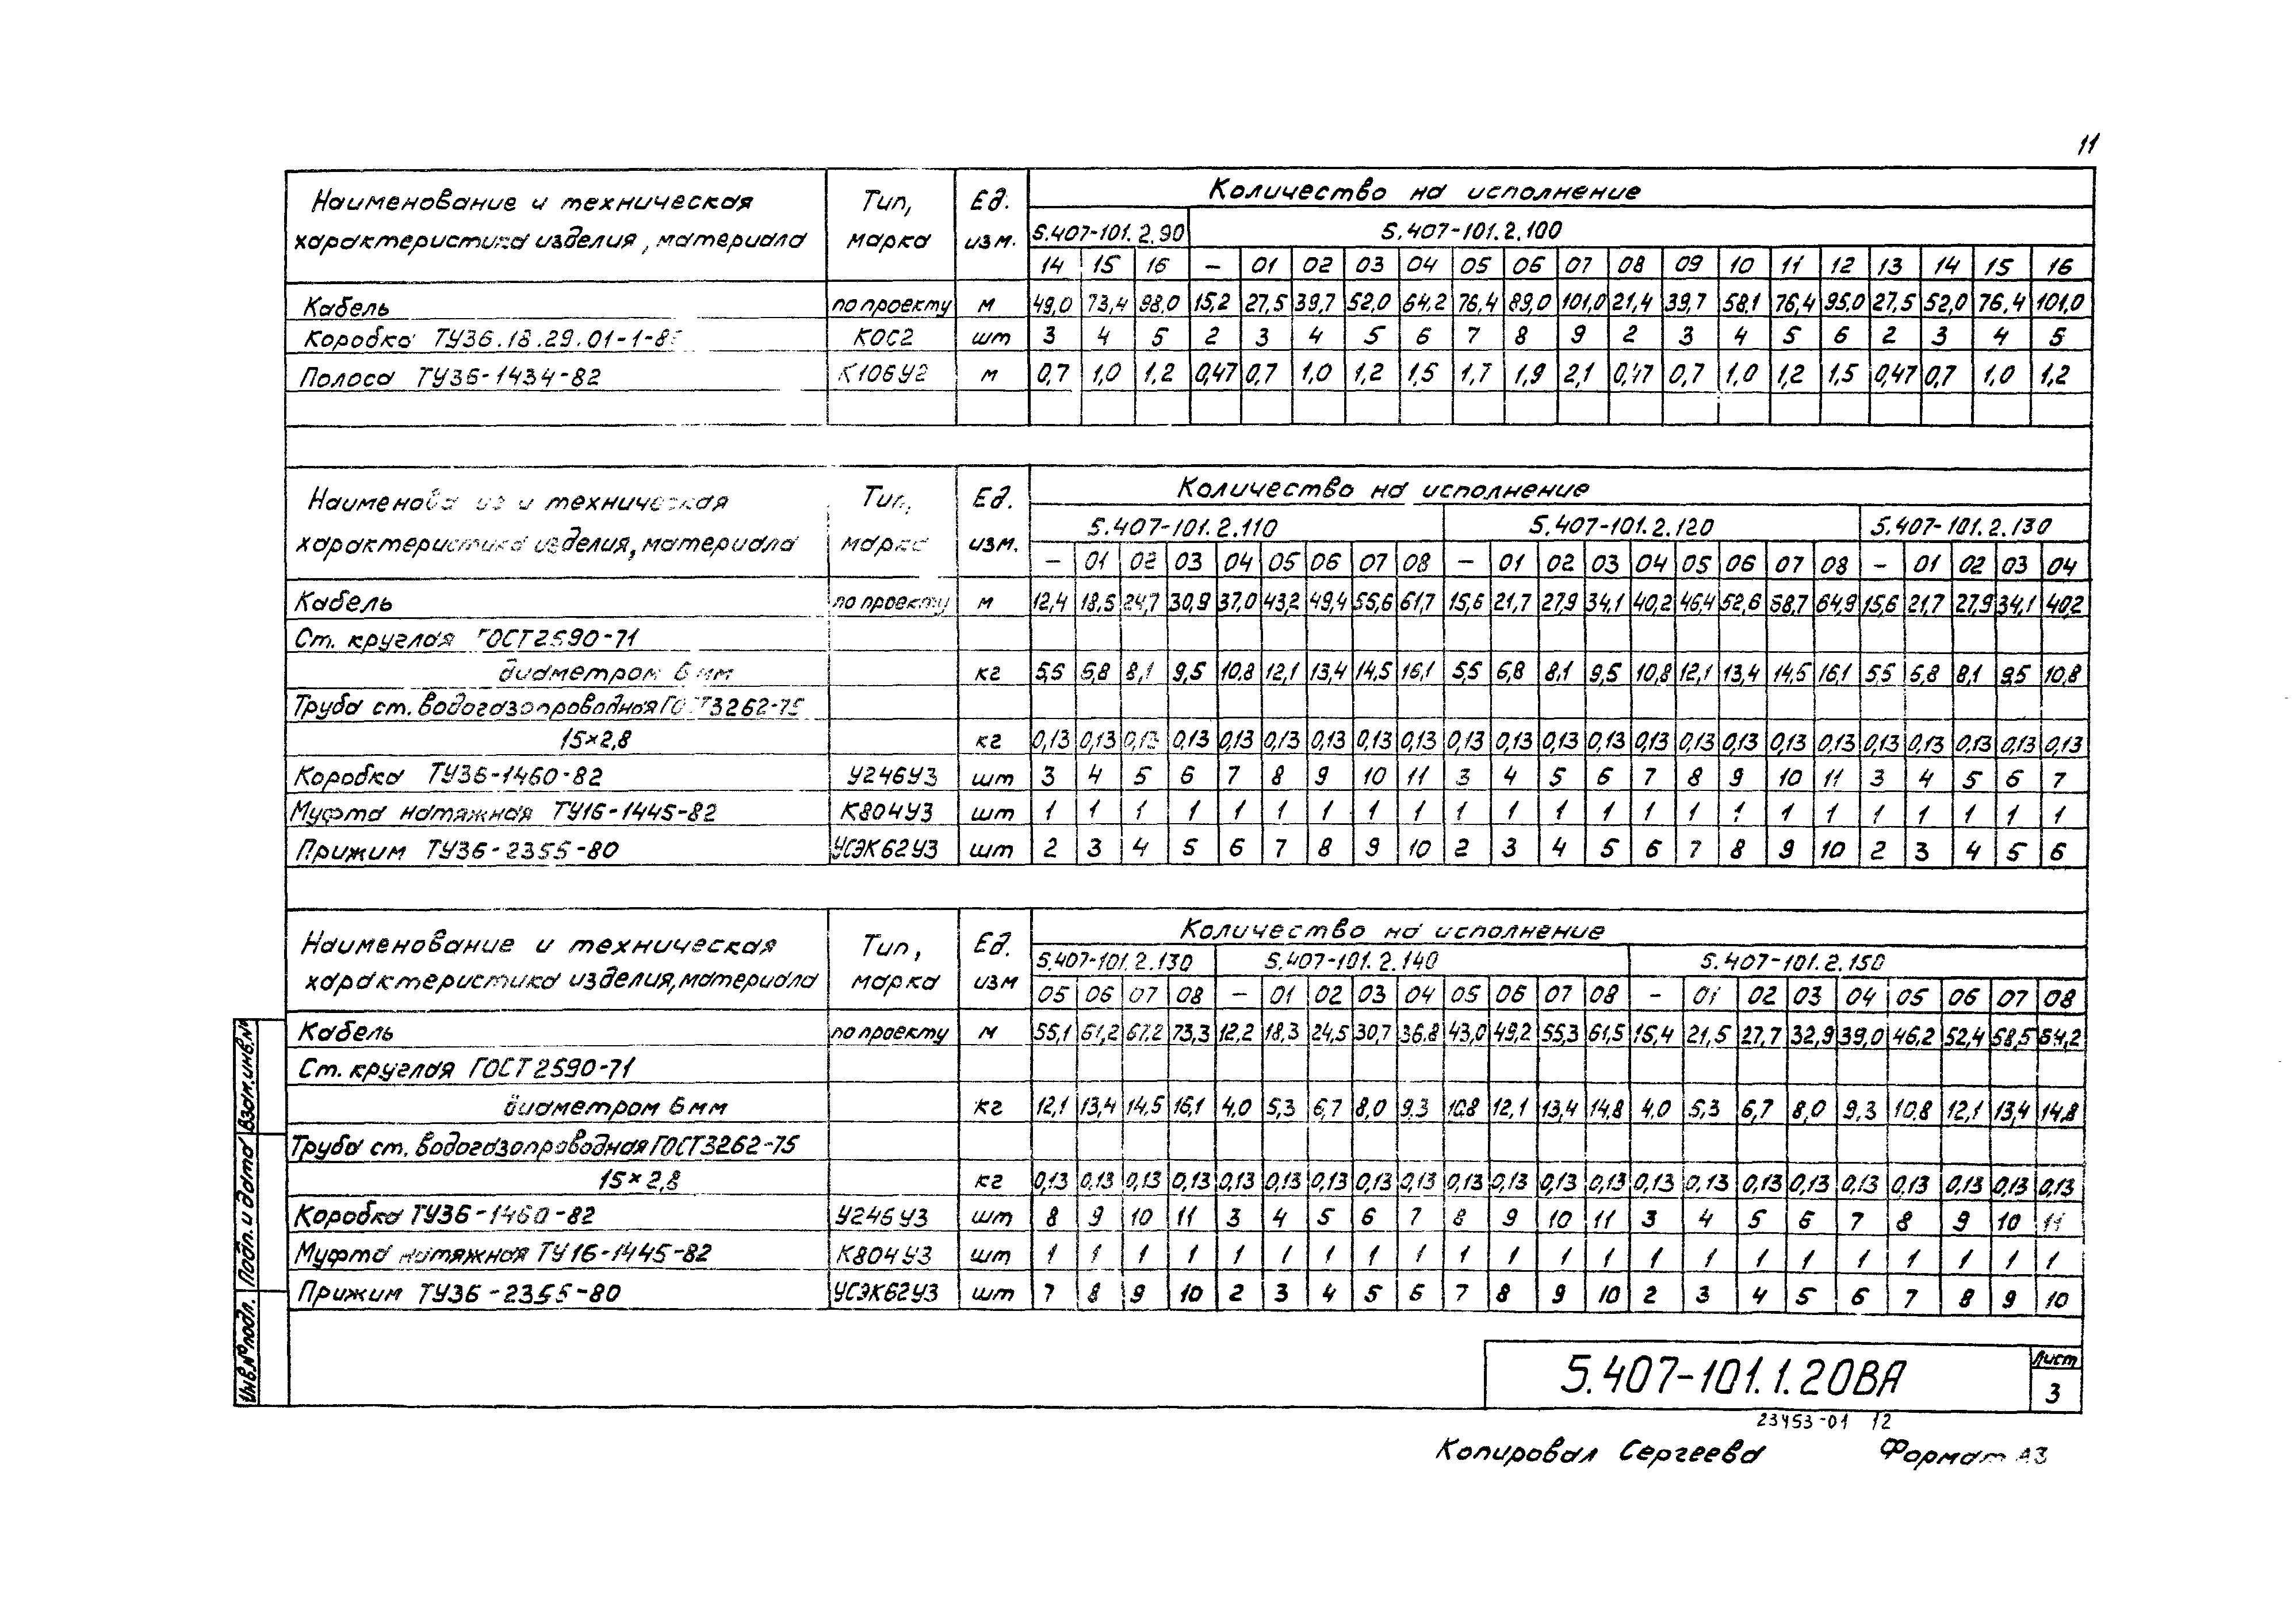 11
Наименование и техническая характеристика изделия, материала | Тип, марка | Ед. изм. | Количество на исполнение
5.407-101.2.90 | 5.407-101.2.100
14 15 16 – 01 02 03 04 05 06 07 08 09 10 11 12 13 14 15 16
Кабель по проекту м 49,0 73,4 98,0 15,2 27,5 39,7 52,0 64,2 76,4 89,0 101,0 21,4 39,7 58,1 76,4 95,0 27,5 52,0 76,4 101,0
Коробка ТУ36.18.29.01-1-8 КОС2 шт 3 4 5 2 3 4 5 6 7 8 9 2 3 4 5 6 2 3 4 5
Полоса ТУ36-1434-82 К106У2 м 0,7 1,0 1,2 0,47 0,7 1,0 1,2 1,5 1,7 1,9 2,1 0,47 0,7 1,0 1,2 1,5 0,47 0,7 1,0 1,2
Наименова ие и техническая характеристика изделия, материала | Тип, марка | Ед. изм. | Количество на исполнение
5.407-101.2.110 | 5.407-101.2.120 | 5.407-101.2.130
– 01 02 03 04 05 06 07 08 – 01 02 03 04 05 06 07 08 – 01 02 03 04
Кабель по проекту м 12,4 18,5 24,7 30,9 37,0 43,2 49,4 55,6 61,7 15,6 21,7 27,9 34,1 40,2 46,4 52,6 58,7 64,9 15,6 21,7 27,9 34,1 40,2
Ст. круглая ГОСТ 2590-71
диаметром 6 мм кг 5,5 6,8 8,1 9,5 10,8 12,1 13,4 14,5 16,1 5,5 6,8 8,1 9,5 10,8 12,1 13,4 14,5 16,1 5,5 6,8 8,1 9,5 10,8
Труба ст. водогазопроводная ГОСТ 3262-75
15×2,8 кг 0,13 0,13 0,13 0,13 0,13 0,13 0,13 0,13 0,13 0,13 0,13 0,13 0,13 0,13 0,13 0,13 0,13 0,13 0,13 0,13 0,13 0,13 0,13
Коробка ТУ36-1460-82 У246У3 шт 3 4 5 6 7 8 9 10 11 3 4 5 6 7 8 9 10 11 3 4 5 6 7
Муфта натяжная ТУ16-1445-82 К804У3 шт 1 1 1 1 1 1 1 1 1 1 1 1 1 1 1 1 1 1 1 1 1 1 1
Прижим ТУ36-2355-80 УСЭК62У3 шт 2 3 4 5 6 7 8 9 10 2 3 4 5 6 7 8 9 10 2 3 4 5 6
Наименование и техническая характеристика изделия, материала | Тип, марка | Ед. изм | Количество на исполнение
5.407-101.2.130 | 5.407-101.2.140 | 5.407-101.2.150
05 06 07 08 – 01 02 03 04 05 06 07 08 – 01 02 03 04 05 06 07 08
Кабель по проекту м 55,1 61,2 67,2 73,3 12,2 18,3 24,5 30,7 36,8 43,0 49,2 55,3 61,5 15,4 21,5 27,7 32,9 39,0 46,2 52,4 58,5 54,2
Ст. круглая ГОСТ 2590-71
диаметром 6 мм кг 12,1 13,4 14,5 16,1 4,0 5,3 6,7 8,0 9,3 10,8 12,1 13,4 14,8 4,0 5,3 6,7 8,0 9,3 10,8 12,1 13,4 14,8
Труба ст. водогазопроводная ГОСТ 3262-75
15×2,8 кг 0,13 0,13 0,13 0,13 0,13 0,13 0,13 0,13 0,13 0,13 0,13 0,13 0,13 0,13 0,13 0,13 0,13 0,13 0,13 0,13 0,13 0,13
Коробка ТУ36-1460-82 У246У3 шт 8 9 10 11 3 4 5 6 7 8 9 10 11 3 4 5 6 7 8 9 10 11
Муфта натяжная ТУ16-1445-82 К804У3 шт 1 1 1 1 1 1 1 1 1 1 1 1 1 1 1 1 1 1 1 1 1 1
Прижим ТУ36-2355-80 УСЭК62У3 шт 7 8 9 10 2 3 4 5 6 7 8 9 10 2 3 4 5 6 7 8 9 10
Инв.№ подл. Подп. и дата Взам.инв.№
5.407-101.1.20ВА
Лист
3
23453-01 12
Копировал Сергеева Формат А3